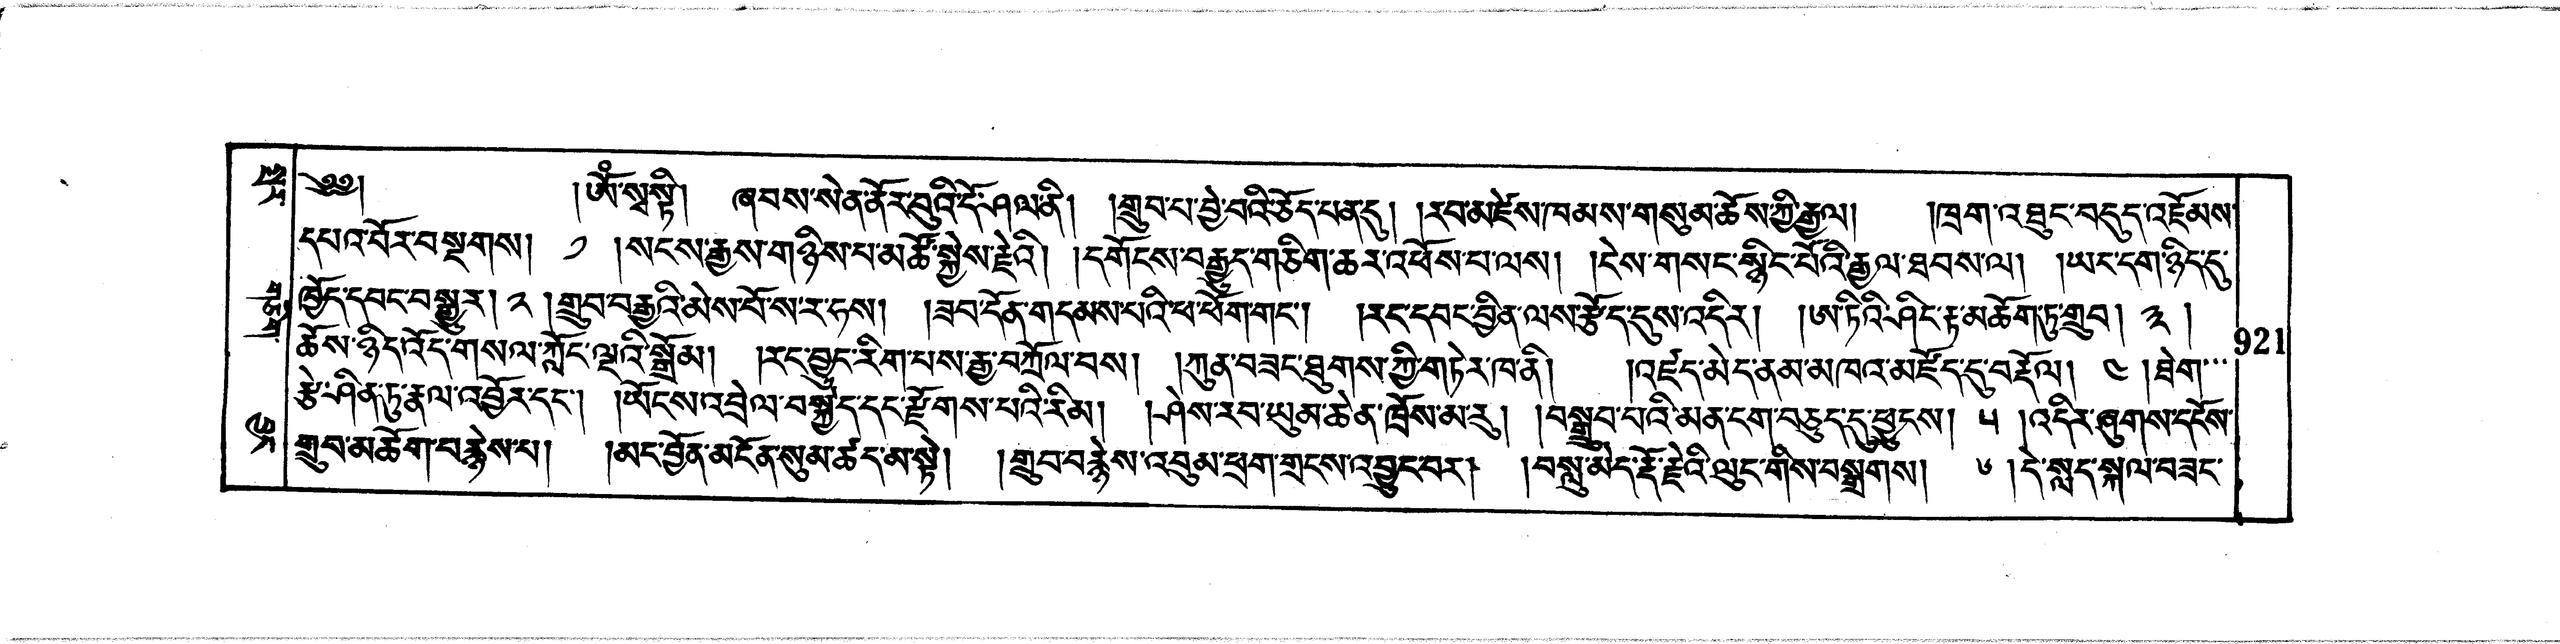 ༄༅། །ཨོཾ་སྭསྟི། ཞབས་སེན་ནོར་བུའི་དོ་ཤལ་ནི། །གྲུབ་པ་བྱེ་བའི་ཅོད་པན་དུ། །རབ་མཛེས་ཁམས་གསུམ་ཆོས་ཀྱི་རྒྱལ། །ཁྲག་འཐུང་བདུད་འཇོམས་
དཔའ་བོར་བསྔགས། ༡ །སངས་རྒྱས་གཉིས་པ་མཚོ་སྐྱེས་རྗེའི། །དགོངས་བརྒྱུད་གཅིག་ཆར་འཕོས་པ་ལས། །ངེས་གསང་སྙིང་པོའི་རྒྱལ་ཐབས་ལ། །ཡང་དག་ཉིད་དུ་
ཁྱོད་དབང་བསྒྱུར། ༢ །གྲུབ་བརྒྱའི་མེས་པོ་ས་ར་ཧས། །ཟབ་དོན་གདམས་པའི་ཕ་ཕོག་གང་། །རང་དབང་བྱིན་ལས་རྩོད་དུས་འདིར། །ཨ་ཏིའི་ཤིང་རྟ་མཆོག་ཏུ་གྲུབ། ༣ །
ཆོས་ཉིད་འོད་གསལ་ཀློང་ལྔའི་སྒྲོམ། །རང་བྱུང་རིག་པས་རྒྱ་བཀྲོལ་བས། །ཀུན་བཟང་ཐུགས་ཀྱི་གཏེར་ཁ་ནི། །འཛད་མེད་ནམ་མཁའ་མཛོད་དུ་བརྡོལ། ༤ །ཐེག་
རྩེ་ཤིན་ཏུ་རྣལ་འབྱོར་དང་། །ཡོངས་འབྲེལ་བསྐྱེད་དང་རྫོགས་པའི་རིམ། །ཤེས་རབ་ཡུམ་ཆེན་ཁྲོས་མ་རུ། །བསྒྲུབ་པའི་མན་ངག་བཅུད་དུ་ཕྱུངས། ༥ །འདིར་ཞུགས་དངོས་
གྲུབ་མཆོག་བརྙེས་པ། །མང་བྱོན་མངོན་སུམ་ཚད་མ་སྟེ། །གྲུབ་བརྙེས་འབུམ་ཕྲག་གྲངས་འབྱུང་བར། །བསླུ་མེད་རྡོ་རྗེའི་ལུང་གིས་བསྒྲགས། ༦ །དེ་སླད་སྐལ་བཟང་
921